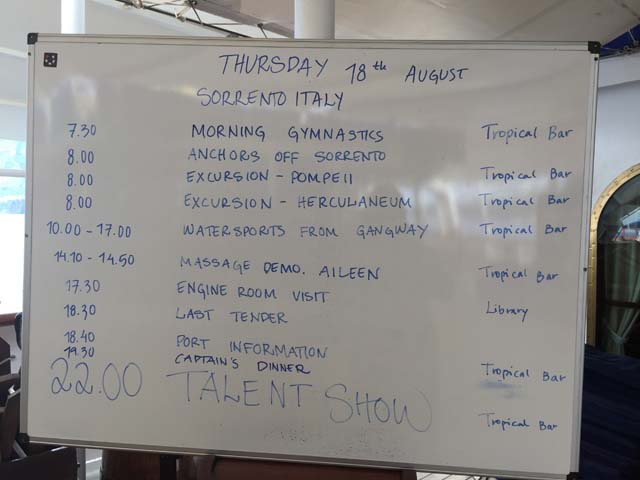 THURSDAY 18th AUGUST
SORRENTO ITALY
7.30 MORNING GYMNASTICS Tropical Bar
8.00 ANCHORS OFF SORRENTO
8.00 EXCURSION - POMPEII Tropical Bar
8.00 EXCURSION - HERCULANEUM Tropical Bar
10.00 - 17.00 WATERSPORTS FROM GANGWAY Tropical Bar
14.10 - 14.50 MASSAGE DEMO. AILEEN Tropical Bar
17.30 ENGINE ROOM VISIT Library
18.30 LAST TENDER
18.40 PORT INFORMATION Tropical Bar
19.30 CAPTAIN'S DINNER
22.00 TALENT SHOW Tropical Bar